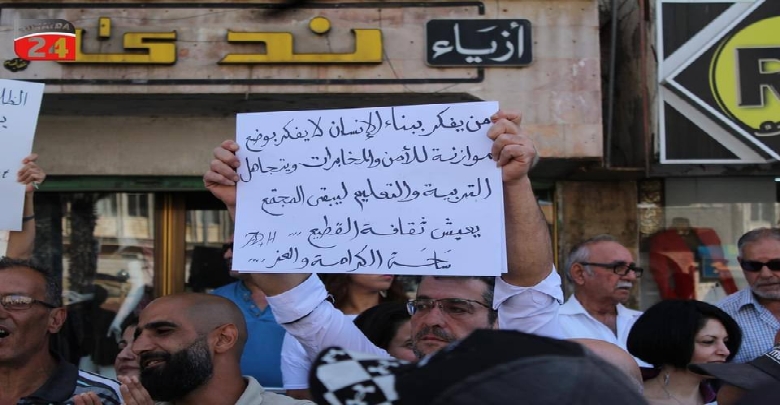 24
ندى
أزياء
R
الطل
من يفكر ببناء الإنسان لا يفكر بوضع
موازنة للأمن والمخابرات ويتجاهل
التربية والتعليم ليبقى المجتمع
يعيش ثقافة القطيع ...
ساحة الكرامة والعز ....